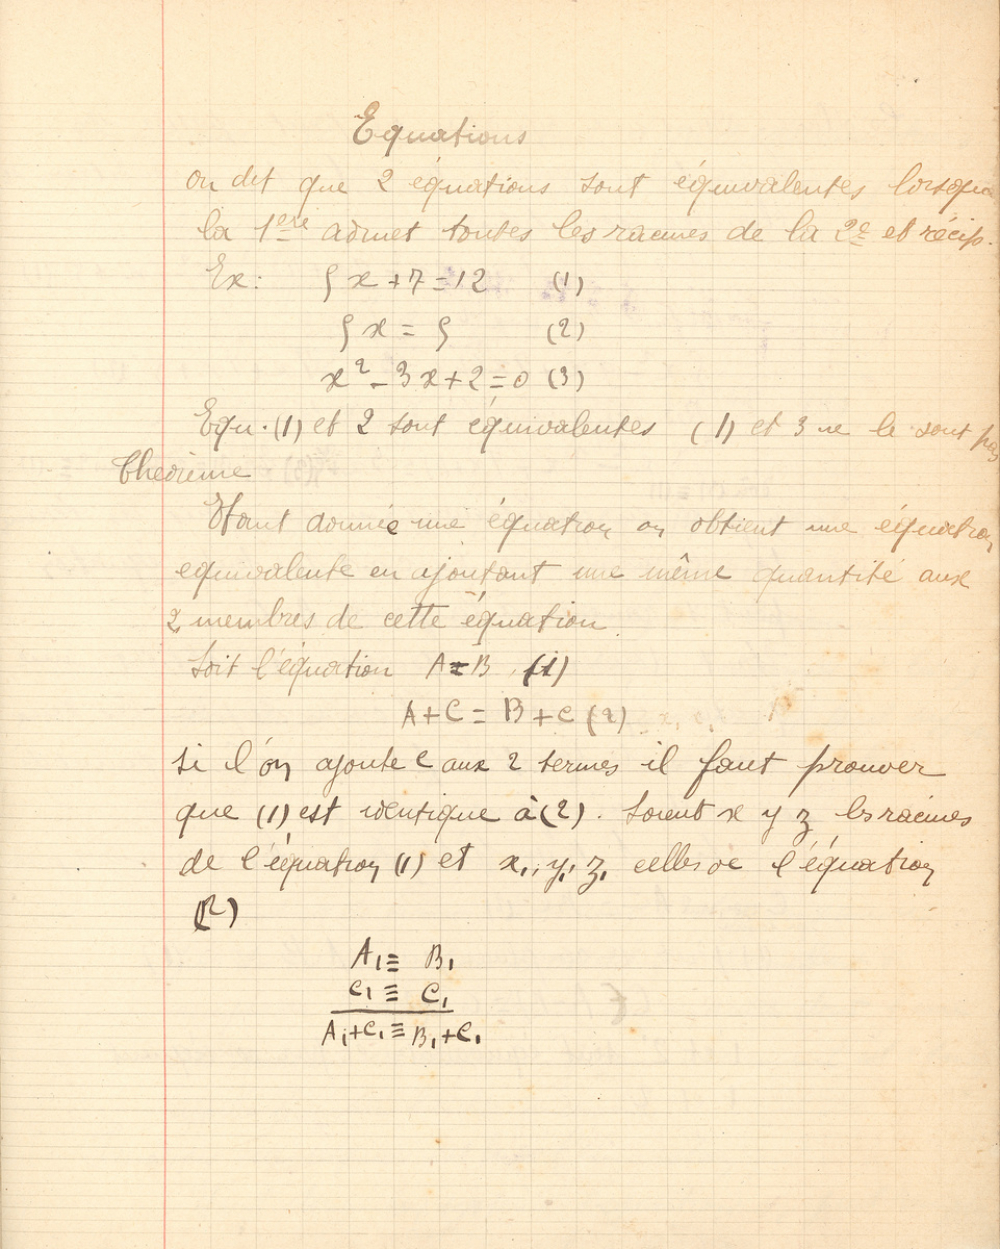 Equations
on dit que 2 équations sont équivalentes lorsque
la 1ère admet toutes les racines de la 2e et récip.
Ex: 5x+7=12 (1)
5x = 5 (2)
x²-3x+2=0 (3)
Equ. (1) et 2 sont équivalentes (1) et 3 ne le sont pas
Théorème
Etant donnée une équation on obtient une équation
equivalente en ajoutant une même quantité aux
2 membres de cette équation.
Soit l'équation A=B (1)
A+C = B+C (2)
si l'on ajoute C aux 2 termes il faut prouver
que (1) est identique à (2). Soient x y z les racines
de l'équation (1) et x₁, y₁, z₁ celles de l'équation
(2)
A₁ ≡ B₁
C₁ ≡ C₁
A₁+C₁ ≡ B₁+C₁